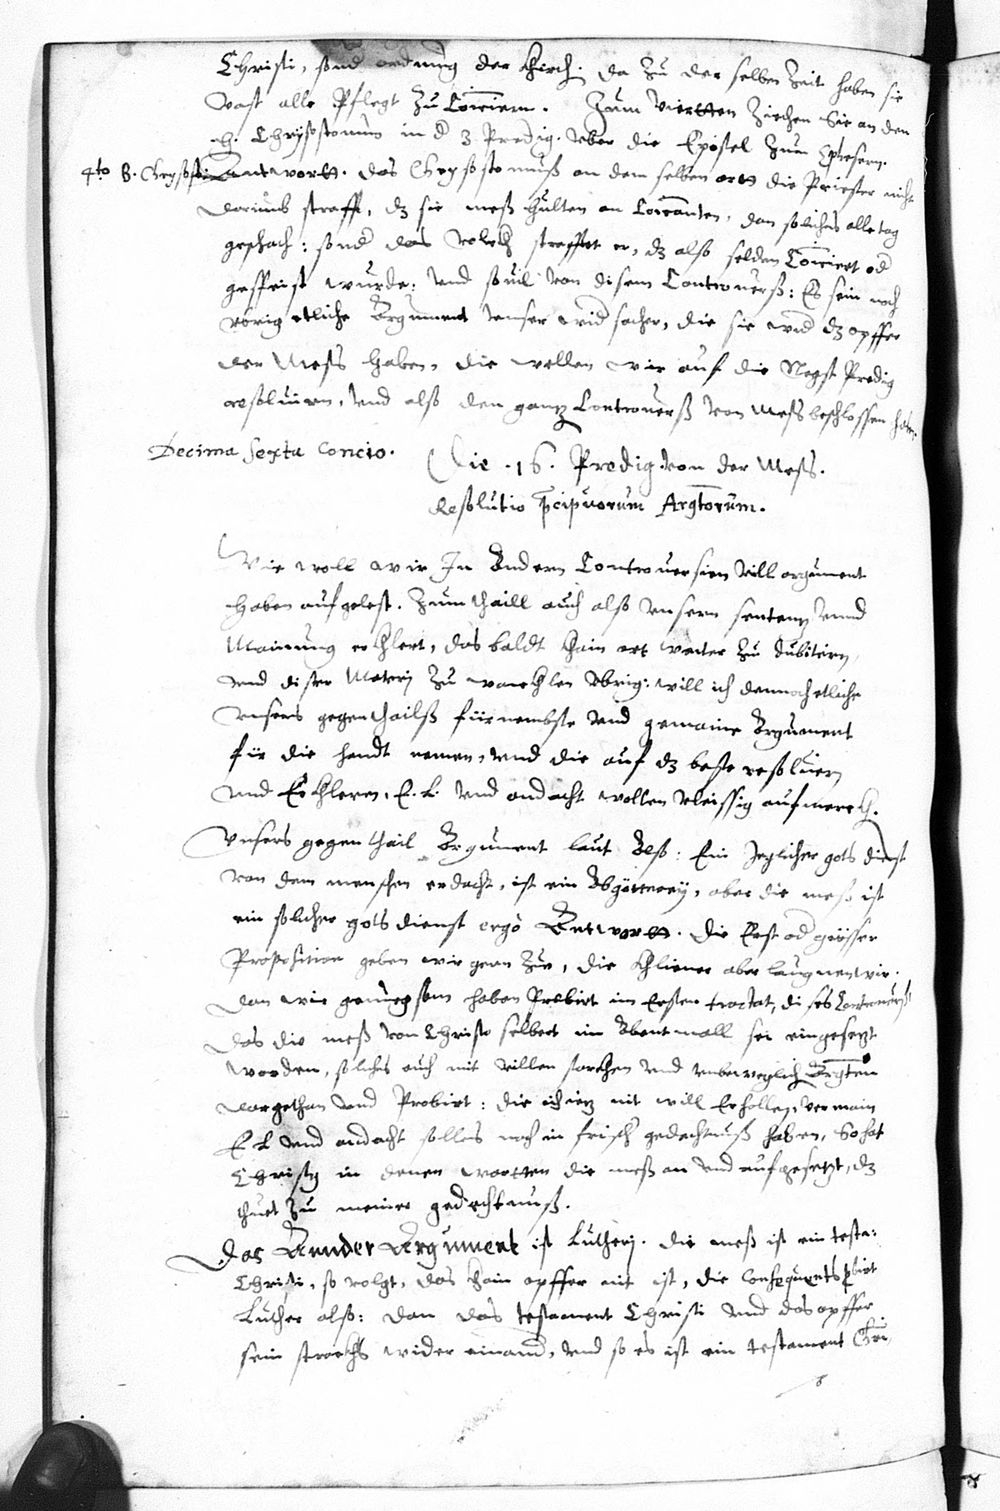 Christi, sond ordnung der Kirch. da zu der selben Zeit haben sie
vast alle Pflegt zu Coiciern. Zum Viertten Ziehen sie an den
H. Chrisostomus in d 3 Predig. vber die Epistel Zum Ephesern.
4to B. Chrysosto Antwortt. das Chrysostomuß an dem selben ortt die Priester nicht
darumb strafft, dz sie meß hulten on Coicanten, dan solches alle tag
geschach: sond das volckh straffet er, dz also selden Coiciert od
gespeist wurde: vnd souil von disem Controuerß: Es sein noch
vbrig etliche Argument vnser widsacher, die sie wid dz opffer
der Mess haben, die wellen wir auf die Negst Predig
resoluiern, vnd also den gantz Controuerß von Mess beschlossen haben.
Decima Sexta Concio. Die .16. Predig von der Mess.
Resolutio pcipuorum Argtorum.
Wie woll wir In Andern Controuersien vill argument
haben aufgelest. Zum thaill auch also vnsern sentenz vnnd
Mainung erkhlert, das baldt khain ort weiter zu dubitirn,
vnd diser Matery zu vbrig: will ich dennoch etliche
vnsers gegenthailß fürnembste vnd gemaine Argument
für die handt nemen, vnd die auf dz beste resoluiern
vnd Erkhlern, E. L. vnd andacht wollen vleissig aufmerckh.
Vnsers gegenthail Argument laut Also: Ein Jeglicher gots dienst
von dem menschen erdacht, ist ein Abgötterey, aber die meß ist
ein solcher gots dienst ergo Antwortt. die Erst od grösser
Proposition geben wir gern Zue, die khliener aber laugnen wir.
dan wir genuegsam haben Probirt im Ersten tractat, dises Controuerß
das die meß von Christo selbert im Abentmall sei eingesetzt
worden, solches auch mit villen starckhen vnd vnbeweglich Argten
dargethan vnd Probirt: die ich iez nit will Erhollen, vermain
E L vnd andacht solles noch in frisch gedechtnuß haben, So hat
Christus in denen wortten die meß an vnd aufgesetzt, dz
thuet zu meiner gedechtnuß.
Das Annder Argument ist Lutherj. die meß ist ein testa:
Christi, so volgt, das khain opffer nit ist, die Consequents pbirt
Luther also: dan das testament Christi vnd das opffer
sein strackhs wider einand, vnd so es ist ein testament Chri